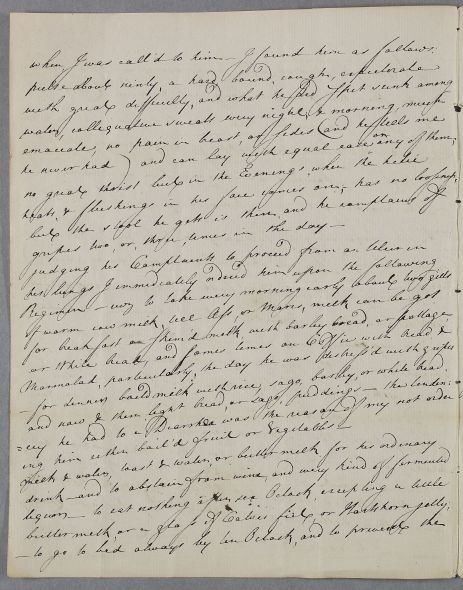 when I was call'd to him – I found him as follows.
Pulse about ninty, a hard bound cough, expectorate
with great difficulty, and what he spit sunk among
water, colliquative sweats every night & morning, much
emaciate, no pain in breast, or sides (and he tells me
he never had) and can lay with equal ease on any of them,
no great thirst but in the Evenings, when the hectic
heats, & flushings in his face comes on; has no looseness,
but the stool he gets is thin, and he complains of
gripes two, or, three, times in the day –
judging his Complaints to proceed from an Ulcer in
his lungs I immediatly order'd him upon the following
Regimen – viz to take every morning early about two gills
of warm cow milk, till Ass or Mares, milk can be got
for breakfast – Skim'd milk with barley bread, or pottage
or White bread, and some times on Coffie with bread &
Marmalad, particularly, the day he was distress'd with gripes
– for dinner boild milk with rice, sago, barley or white bread.
and now & then light bread, or sago, puddings – the tenden-
=cy he had to a Diarrhœa was the reason of my not order-
ing him either boil'd fruit or Vegitables –
milk & water, toast & water, or buttermilk for his ordinary
drink – and to abstain from wine, and every kind of fermented
liquors – to eat nothing after six O'clock, excepting a little
buttermilk, or a glass of Calves feet or Hartshorn jelly,
– to go to bed always by ten O'clock, and to prevent the